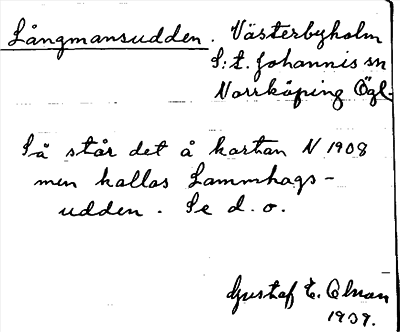 Långmansudden. Västerbyholm
S:t. Johannis sn
Norrköping Ögl.
Så står det å kartan N 1908
men kallas Lammhags-
udden. Se d. o.
Gustaf E. Olsson
1939.